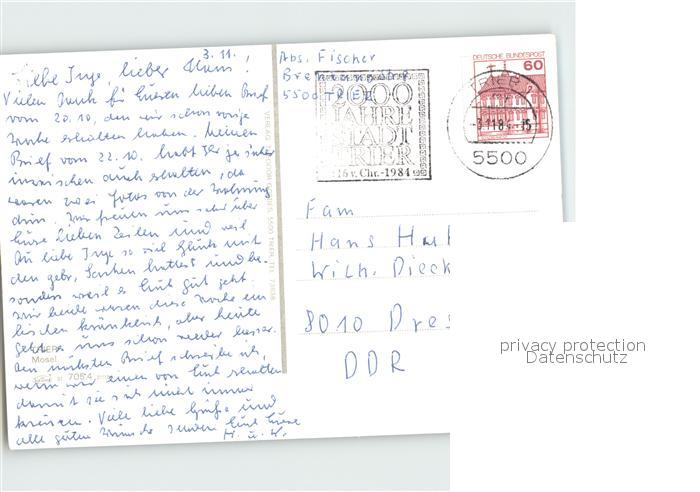 3.11.
Liebe Inge, lieber Hans!
Vielen Dank für Eueren lieben Brief
vom 20.10, den wir schon vorige
Woche erhalten haben. Meinen
Brief vom 22.10. habt Ihr ja sicher
inzwischen auch erhalten, da
waren zwei Fotos von der Wohnung
drin. Wir freuen uns sehr über
Eure lieben Zeilen und weil
Du liebe Inge so viel Glück mit
den gebr. Sachen hattest und be-
sonders weil es Euch gut geht.
Wir beide waren diese Woche ein
bischen kränklich, aber heute
geht es uns schon wieder besser.
Den nächsten Brief schreibe ich,
wenn wir einen von Euch erhalten
damit sie sich nicht immer
kreuzen. Viele liebe Grüße und
alle guten Wünsche senden Euch Eure
H. u. K.
TRIER
Mosel
Abs. Fischer
5500 TRIER
2000
JAHRE
STADT
TRIER
16 v. Chr. - 1984
DEUTSCHE BUNDESPOST
60
TRIER
5500
Fam
Hans
Wilh. Dieck
8010 Dres
DDR
privacy protection
Datenschutz